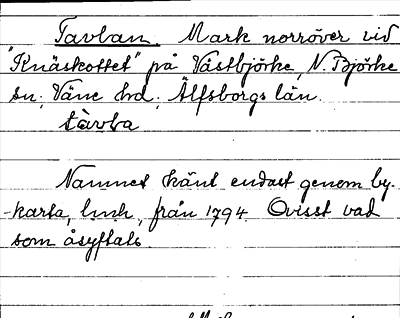 Tavlan. Mark norröver vid
"Knäskottet" på Västbjörke, N. Björke
sn, Väne hd, Älfsborgs län
tàvla
Namnet känt endast genom by-
-karta, från 1794. Ovisst vad
som åsyftats